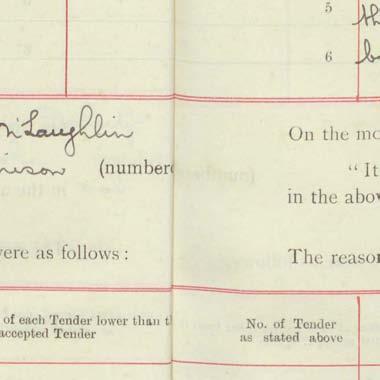 5
6
M'Laughlin
(number
were as follows :
of each Tender lower than t
accepted Tender
On the mo
"It
in the abov
The reason
No. of Tender
as stated above